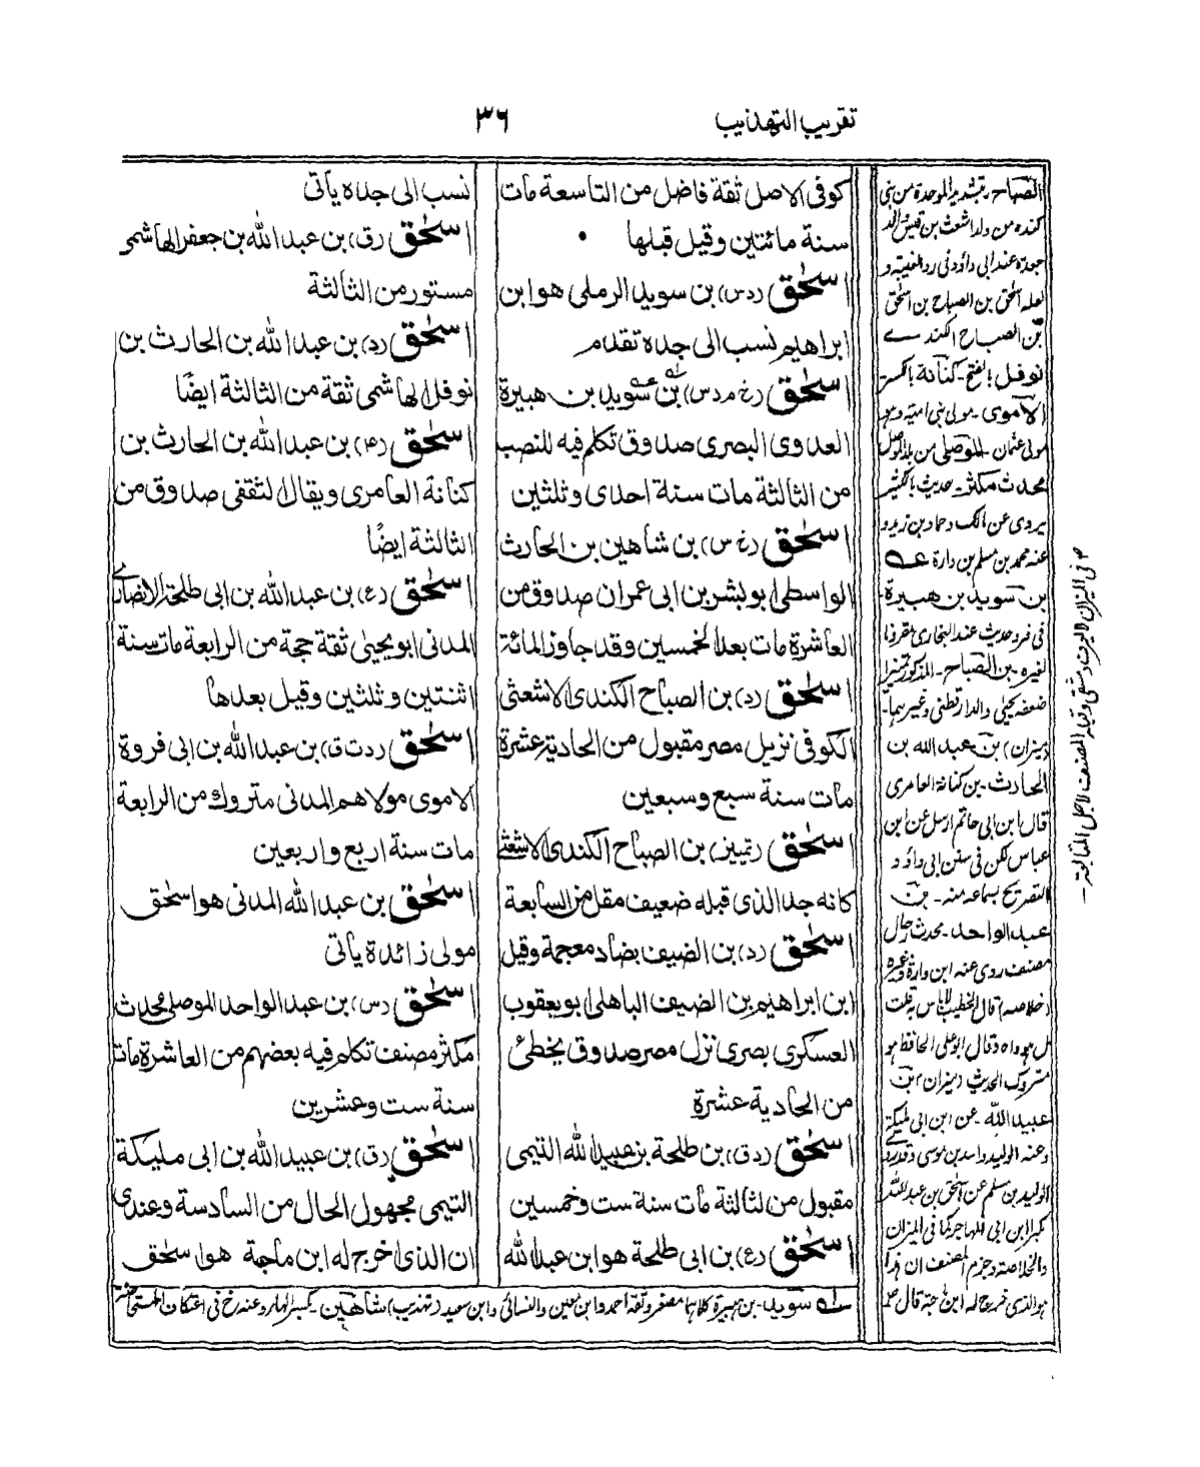 تقريب التهذيب
٣٦
كوفى الاصل ثقة فاضل من التاسعة مات
سنة مائتين وقيل قبلها
اسحٰق (د س) بن سويد الرملى هو ابن
ابراهيم نسب الى جده تقدم
اسحٰق (خ م د س) بن سويد بن هبيرة
العدوى البصرى صدوق تكلم فيه للنصب
من الثالثة مات سنة احدى وثلثين
اسحٰق (خ س) بن شاهين بن الحارث
الواسطى ابو بشر بن ابى عمران صدوق من
العاشرة مات بعد الخمسين وقد جاوز المائة
اسحٰق (د) بن الصباح الكندى الاشعثى
الكوفى نزيل مصر مقبول من الحادية عشرة
مات سنة سبع وسبعين
اسحٰق (تمييز) بن الصباح الكندى الاشعثى
كانه جد الذى قبله ضعيف مقل من السابعة
اسحٰق (د) بن الضيف بضاد معجمة وقيل
ابن ابراهيم بن الضيف الباهلى ابو يعقوب
العسكرى بصرى نزل مصر صدوق يخطئ
من الحادية عشرة
اسحٰق (د ق) بن طلحة بن عبيد الله التيمى
مقبول من الثالثة مات سنة ست وخمسين
اسحٰق (ع) بن ابى طلحة هو ابن عبد الله
نسب الى جده يأتى
اسحٰق (ق) بن عبد الله بن جعفر الهاشمى
مستور من الثالثة
اسحٰق (د) بن عبد الله بن الحارث بن
نوفل الهاشمى ثقة من الثالثة ايضًا
اسحٰق (٤) بن عبد الله بن الحارث بن
كنانة العامرى ويقال الثقفى صدوق من
الثالثة ايضًا
اسحٰق (ع) بن عبد الله بن ابى طلحة الانصارى
المدنى ابو يحيىٰ ثقة حجة من الرابعة مات سنة
اثنتين وثلثين وقيل بعدها
اسحٰق (د ت ق) بن عبد الله بن ابى فروة
الاموى مولاهم المدنى متروك من الرابعة
مات سنة اربع واربعين
اسحٰق بن عبد الله المدنى هو اسحٰق
مولى زائدة يأتى
اسحٰق (س) بن عبد الواحد الموصلى محدث
مكثر مصنف تكلم فيه بعضهم من العاشرة مات
سنة ست وعشرين
اسحٰق (ق) بن عبيد الله بن ابى مليكة
التيمى مجهول الحال من السادسة وعندى
ان الذى اخرج له ابن ماجة هو اسحٰق
الصباح بتشديد الموحدة من بنى
كنده من ولد اشعث بن قيس
نوفل بالفتح - كنانة بالكسر
الاموى - مولى بنى امية
محدث مكثر - حديث
يروى عن مالك وحماد بن زيد و
عنه محمد بن مسلم بن وارة عه
بن سويد بن هبيرة
لغيره - بن الصباح - المذكور تميزا
ضعفه يحيى والدارقطنى وغيرهما
(ميزان) بن عبد الله بن
الحارث - بن كنانة العامرى
قال ابن ابى حاتم ارسل عن ابن
عباس لكن فى سنن ابى داؤد
التصريح بسماعه منه - بن
عبد الواحد - محدث
مصنف روى عنه ابن وارة وغيره
وقال ابو على الحافظ هو
متروك الحديث (ميزان) بن
عبيد الله - عن ابن ابى مليكة
الوليد بن مسلم عن اسحق بن عبيد الله
والخلاصة وجزم المصنف ان هذا
هو الذى خرج له ابن ماجة قال
سويد - بن هبيرة كلاهما مصغر وثقه احمد وابن معين والنسائى وابن سعيد (تهذيب) شاهين - بكسر الهاء وعنه خ فى اعتكاف المستحاضة